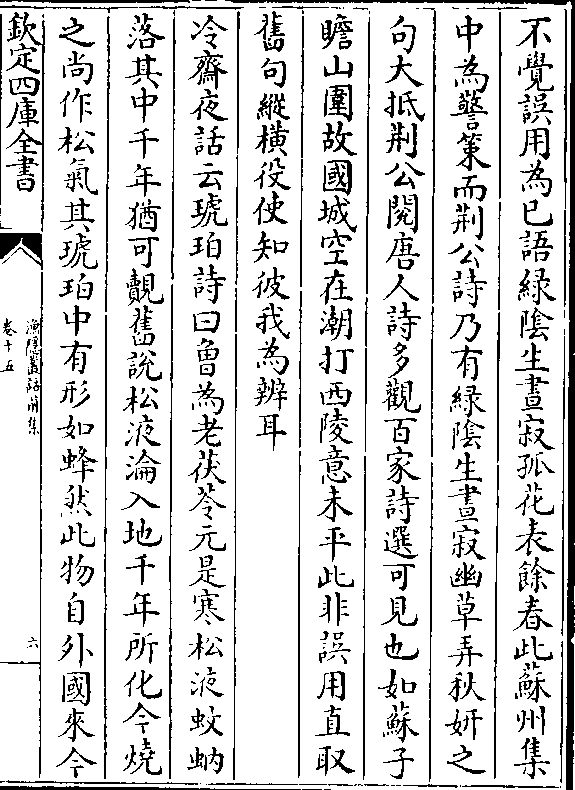 不覺誤用為已語緑陰生晝寂孤花表餘春此蘇州集
中為警策而荆公詩乃有緑陰生晝寂幽草弄秋妍之
句大抵荆公閱唐人詩多觀百家詩選可見也如蘇子
瞻山圍故國城空在潮打西陵意未平此非誤用直取
舊句縱横役使知彼我為辨耳
冷齋夜話云琥珀詩曰曾為老茯苓元是寒松液蚊蚋
落其中千年猶可覿舊說松液淪入地千年所化今燒
之尚作松氣其琥珀中有形如蜂然此物自外國來今
欽定四庫全書
漁隱叢話前集
卷十五
六